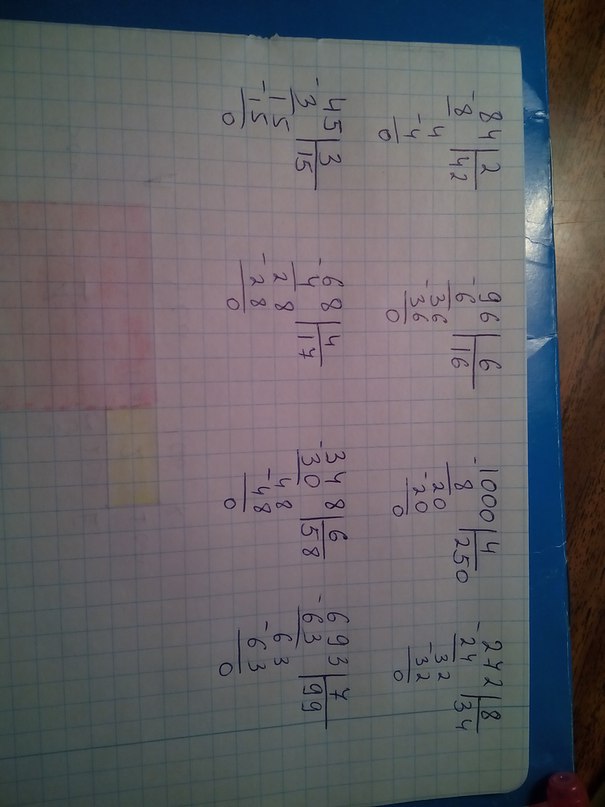 -84|2 -96|6 -1000|4 -272|8
8|42 6|16 8|250 24|34
-4 -36 -20 -32
4 36 20 32
0 0 0 0
-45|3 -68|4 -348|6 -693|7
3|15 4|17 30|58 63|99
-15 -28 -48 -63
15 28 48 63
0 0 0 0